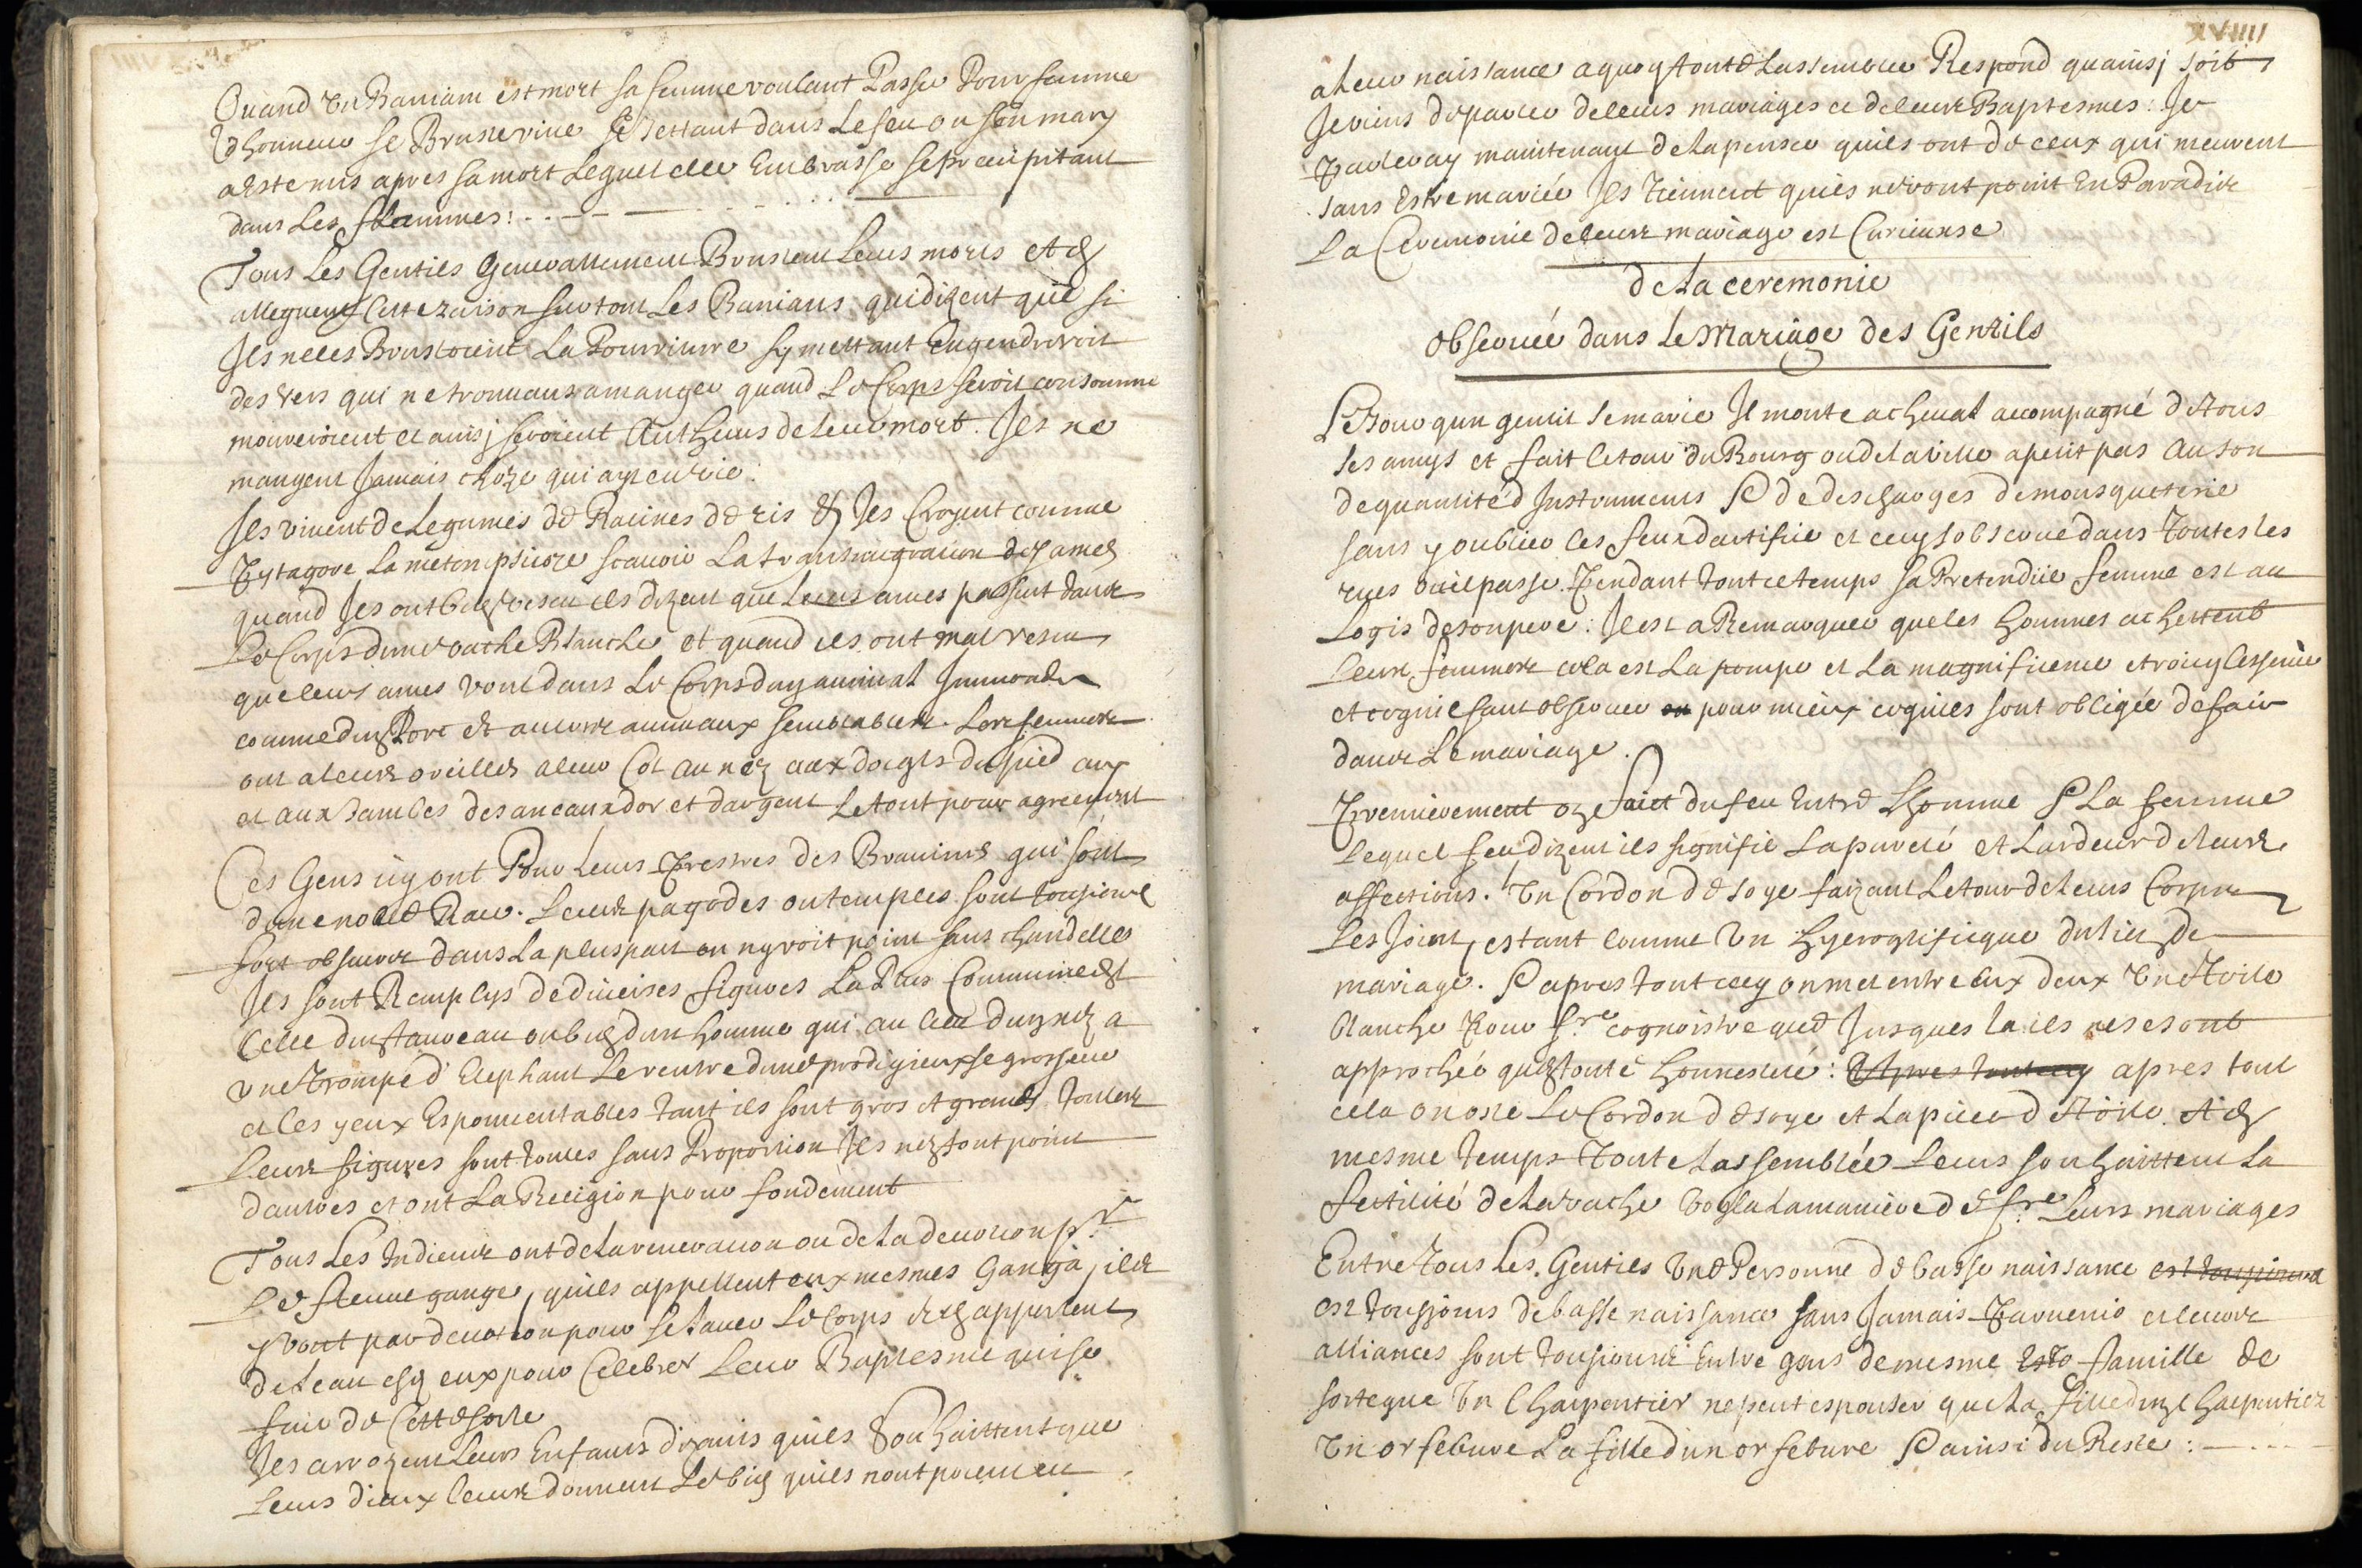 Quand Un Baniam est mort sa femme voulant Passer Pour femme
dhonneur se Brusle vive se Jettant dans Le feu ou son mary
a este mis apres sa mort Lequel elle Embrasse se precipitant
dans Les flammes:
Tous Les Gentils Generallement Bruslent Leurs morts Et
alleguent Cette raison sur tout Les Banians qui dizent que si
Ils ne les Brusloient La Pourriture sy mettant Engendreroit
des vers qui ne trouvans a manger quand Le Corps seroit consomme
moureroient et ainsj seroient Autheurs de leur mort. Ils ne
mangent Jamais choze qui ayt eu vie.
Ils vivent de Legumes de Racines de ris & Ils Croyent comme
Pytagore La metempsicoze scavoir La transmigration des ames
quand Ils ont bien vescu ils dizent que Leurs ames passent dans
Le Corps dune vache Blanche et quand ils ont mal vescu
que leurs ames vont dans Le Corps dun animal Immonde
comme dun Porc et autres animaux semblables. Les femmes
ont a leurs oreilles a leur Col au nez aux doigts du pied
et aux Jambes des aneaux dor et dargent Le tout pour agreement
Ces Gens icy ont Pour Leurs Prestres des Bramins qui sont
dune noble Race. Leurs pagodes ou temples sont tousiours
fort obscures dans La pluspart on ny voit point sans chandelles
Ils sont Remplys de diverses figures La Plus Commune est
Celle dun taureau ou bien dun homme qui au lieu dun nez a
une trompe d'Elephant Le ventre dune prodigieusse grosseur
et les yeux Espouventables tant ils sont gros et grands toutes
Leurs figures sont toutes sans Proportion Ils nen font point
dautres et ont La Religion pour fondement
Tous Les Indiens ont de la veneration ou de la devotion pr
Le fleuve gange, quils appellent eux mesmes Ganga, ils
y vont par devotion pour se laver Le Corps et en apportent
de Leau chez eux pour Celebrer Leur Baptesme qui se
fait de Cette sorte
Ils arrozent Leurs Enfans dizants quils Souhaittent que
Leurs dieux leurs donnent Le bien quils nont point eu
XVIIII
a leur naissance a quoy toute Lassemblee Respond quainsj soit
Je viens de parler de leurs mariages et de leurs Baptesmes: Je
Parleray maintenant de la pensee quils ont de ceux qui meurent
sans Estre mariée Ils tiennent quils ne vont point En Paradis
La Ceremonie de leurs mariage est Curieuse
de La ceremonie
observée dans Le Mariage des Gentils
Le Jour qun gentil se marie Il monte a cheval accompagné de tous
ses amys et fait le tour du Bourg ou de la ville a petit pas au son
de quantité d Instruments & de descharges de mousqueterie
sans y oublier les feux dartifice et cecy sobserve dans Toutes les
rues ou il passe. Pendant tout ce temps sa Pretendüe femme est au
Logis de son pere: Il est a Remarquer que les hommes achettent
leurs femmes cela est La pompe et La magnificence et voicy
et ce quil faut observer pour mieux ce quils sont obligée de faire
dans Le mariage.
Premierement on faict du feu Entre Lhomme & La femme
Lequel feu dizent ils signifie La pureté et Lardeur de leurs
affections. Un Cordon de soye faizant Le tour de leurs Corps
Les Joint, estant comme Un hyeroglificque du lien de
mariage. & apres tout cecy on met entre Eux deux Une toile
blanche Pour fre cognoistre que Jusques la ils ne se sont
approchée quen toute honnesteté: Et apres tout cecy apres tout
cela on oste Le Cordon de soye et La piece de toile. Et en
mesme temps Toute Lassemblée Leurs souhaittent La
fertilité de la vache voyla La maniere de fre Leurs mariages
Entre tous Les Gentils Une Personne de basse naissance est tousiours
est tousjours de basse naissance sans Jamais Parvenir et leurs
alliances sont tousiours Entre gens de mesme famille de
sorte que Un Charpentier ne peut espouser que La fille dun Charpentier
Un orfebure La fille dun orfebure & ainsi du Reste: